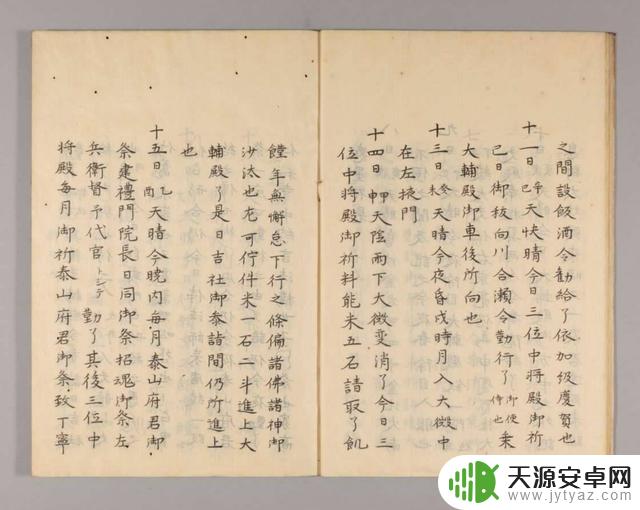 之間設飯酒令勧給了依加級慶賀也
十一日辛巳天快晴今日三位中将殿御祈
巳日御祓向川合瀬令勤行了御使侍也乗
大輔殿御車後所向也
十三日癸未天晴今夜昏戌時月入大微中
在左掖門
十四日甲申天陰雨下大微変消了今日三
位中将殿御祈料能米五石請取了飢
饉年無懈怠下行之條偏諸佛諸神御
沙汰也尤可佇件米一石二斗進上大
輔殿了是日吉社御参詣間仍所進上
也
十五日乙酉天晴今暁内毎月泰山府君御
祭建禮門院長日同御祭招魂御祭左
兵衛督予代官トシテ勤了其後三位中
将殿毎月御祈泰山府君御祭致丁寧
天源安卓网
www.jytyaz.com